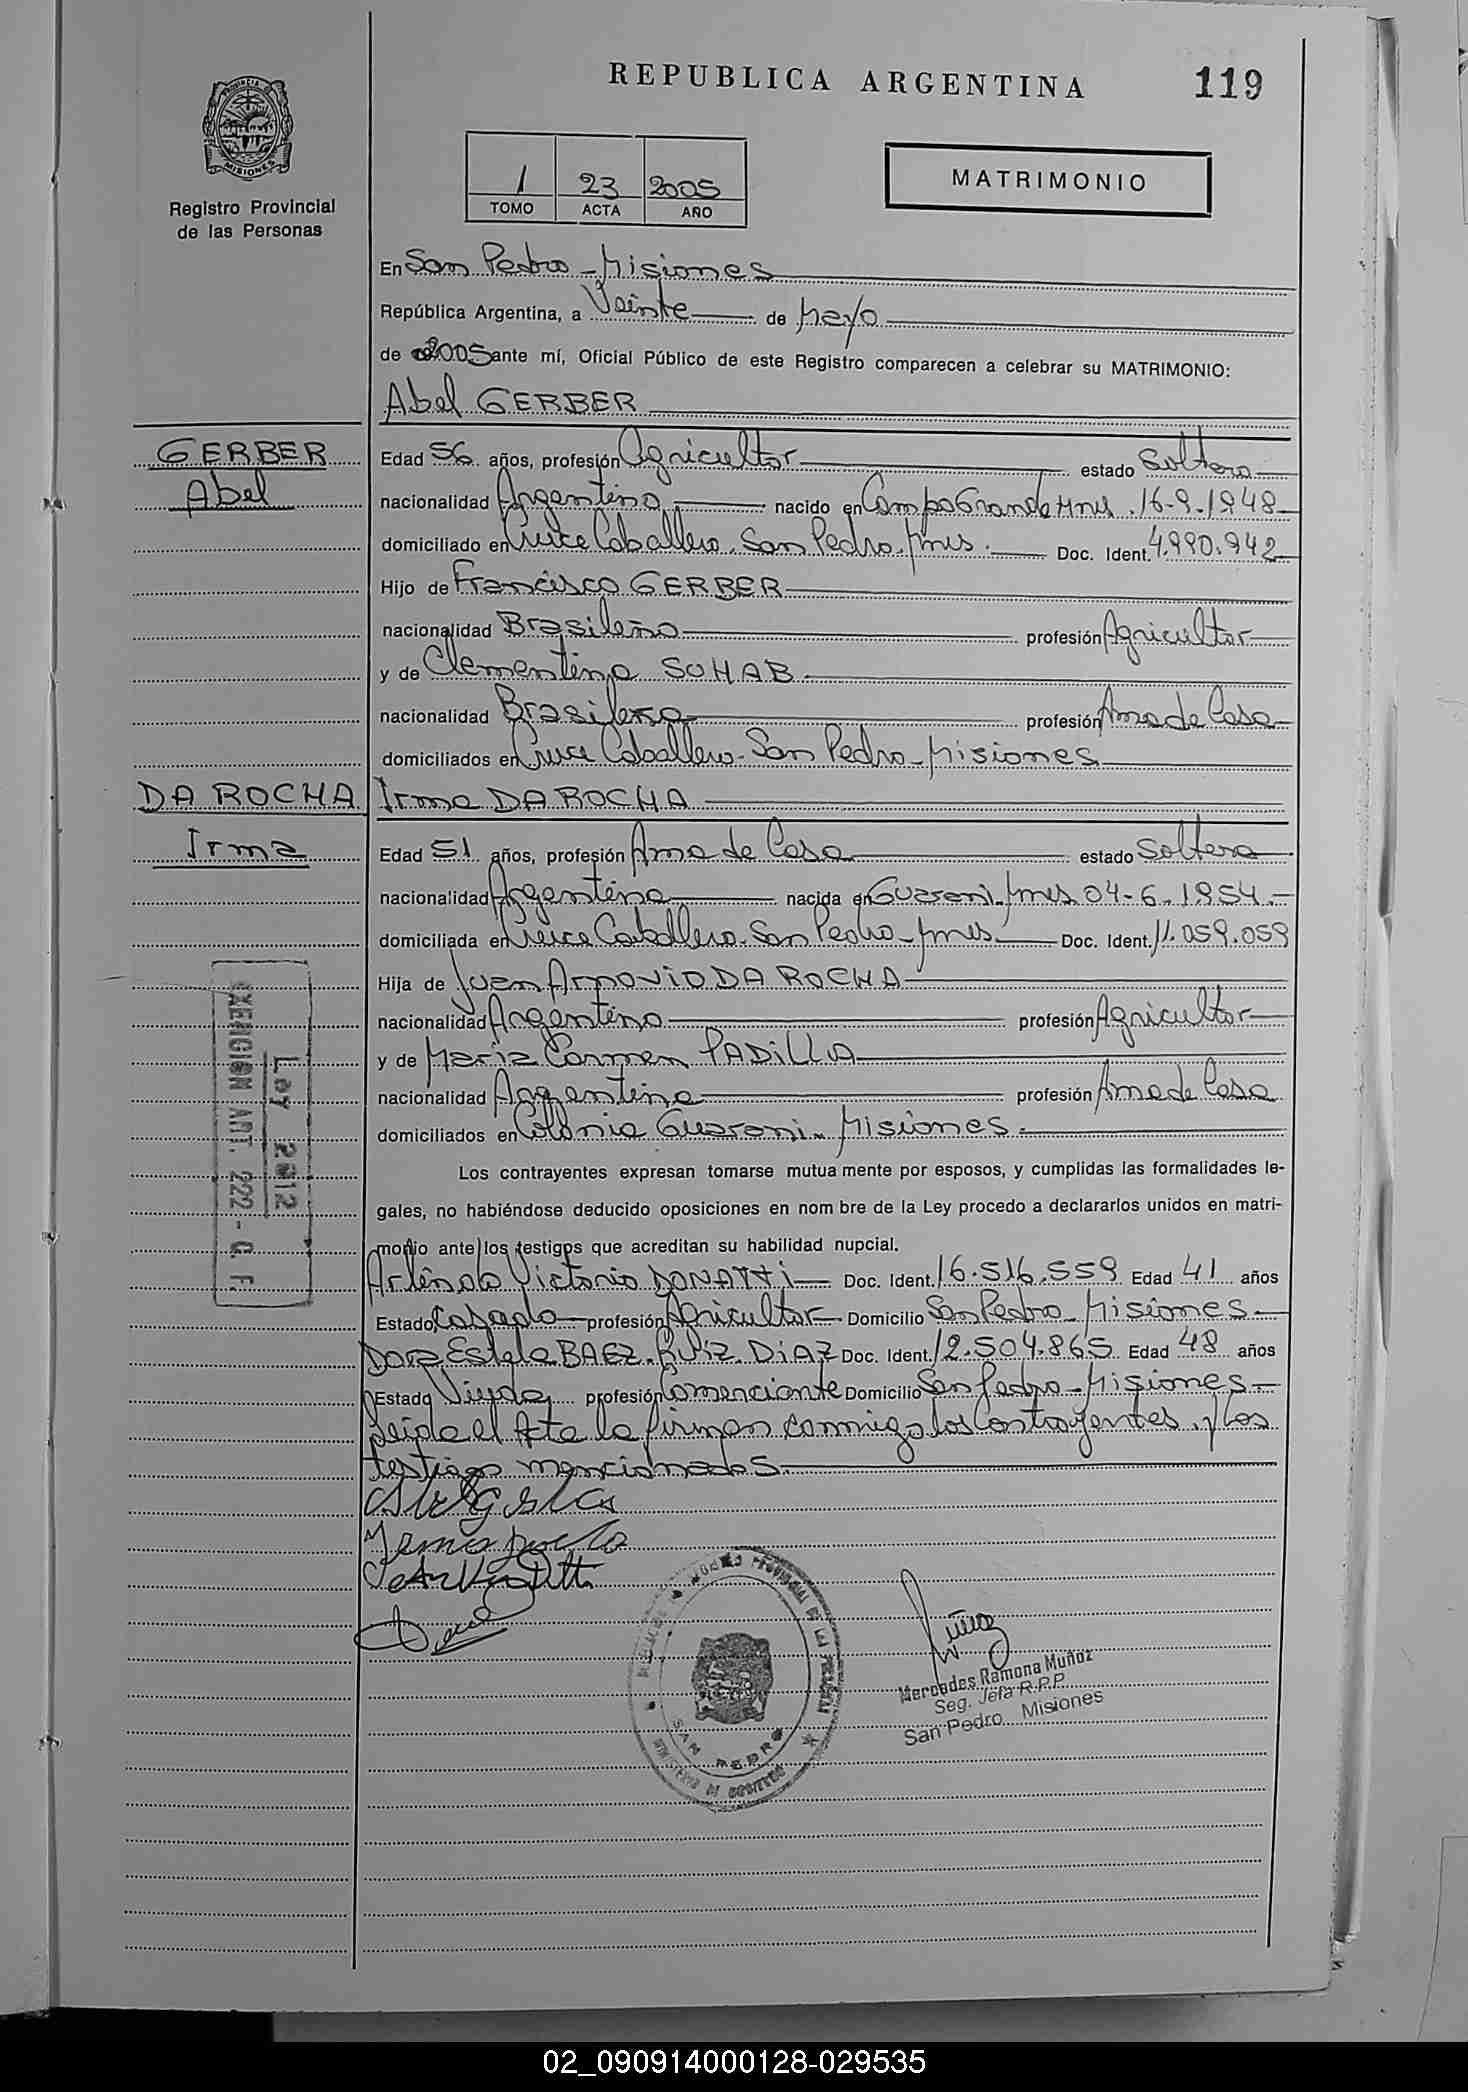 REPUBLICA ARGENTINA
119
PROVINCIA DE
MISIONES
Registro Provincial
de las Personas
1 23 2005
TOMO ACTA AÑO
MATRIMONIO
En San Pedro - Misiones
República Argentina, a Veinte de Mayo
de 2005 ante mí, Oficial Público de este Registro comparecen a celebrar su MATRIMONIO:
Abel GERBER
GERBER
Abel
Edad 56 años, profesión Agricultor estado Soltero
nacionalidad Argentino nacido en Campo Grande Mnes. 16-9-1948
domiciliado en Cruce Caballero. San Pedro. Mnes. Doc. Ident. 4.990.942
Hijo de Francisco GERBER
nacionalidad Brasileño profesión Agricultor
y de Clementina SUHAB
nacionalidad Brasileña profesión Ama de Casa
domiciliados en Cruce Caballero - San Pedro - Misiones
DA ROCHA
Irma
Irma DA ROCHA
Edad 51 años, profesión Ama de Casa estado Soltera
nacionalidad Argentina nacida en Guarani. Mnes 04-6.1954.-
domiciliada en Cruce Caballero. San Pedro - Mnes. Doc. Ident. 11.059.059
Hija de Juan DA ROCHA
nacionalidad Argentino profesión Agricultor
y de Maria Carmen PADILLA
nacionalidad Argentina profesión Ama de Casa
domiciliados en Colonia Guarani - Misiones.
Los contrayentes expresan tomarse mutua mente por esposos, y cumplidas las formalidades le-
gales, no habiéndose deducido oposiciones en nom bre de la Ley procedo a declararlos unidos en matri-
monio ante los testigos que acreditan su habilidad nupcial.
Arlindo Victorio DONATTi Doc. Ident. 16.516.559 Edad 41 años
Estado Casado profesión Agricultor Domicilio San Pedro - Misiones
Dora Estela BAEZ. RUiZ. DiAZ Doc. Ident. 12.504.865 Edad 48 años
Estado Viuda profesión Comerciante Domicilio San Pedro - Misiones
Leida el Acta la firman conmigo los Contrayentes, y los
testigos mencionados.
EXENCION ART. 222 - C. F.
Ley 2912
SAN PEDRO
MINISTERIO DE GOBIERNO
Mercedes Ramona Muñoz
Seg. Jefa R.P.P.
San Pedro Misiones
02_090914000128-029535